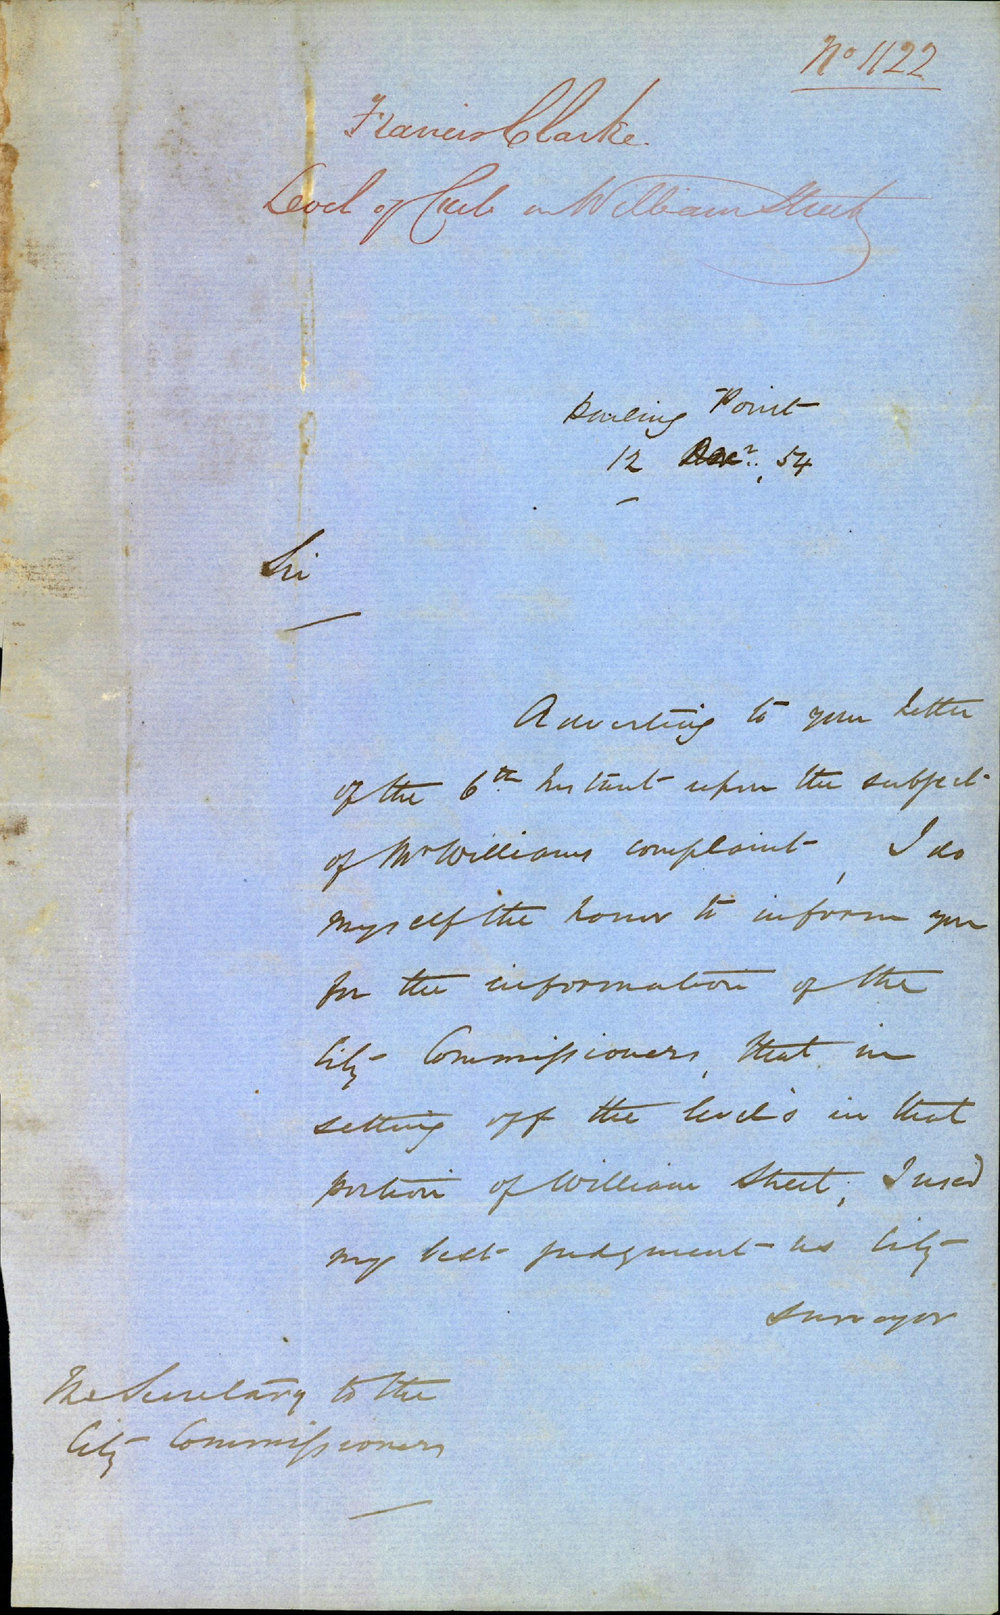 No 1122
Francis Clarke.
Level of Curb in William Street
Darling Point
12 Decr. 54
Sir
Adverting to your letter
of the 6th Instant upon the subject
of Mr Williams complaint, I do
myself the honor to inform you
for the information of the
City Commissioners, that in
setting off the levels in that
portion of William Street, I used
my best judgment as City
Surveyor
The Secretary to the
City Commissioners